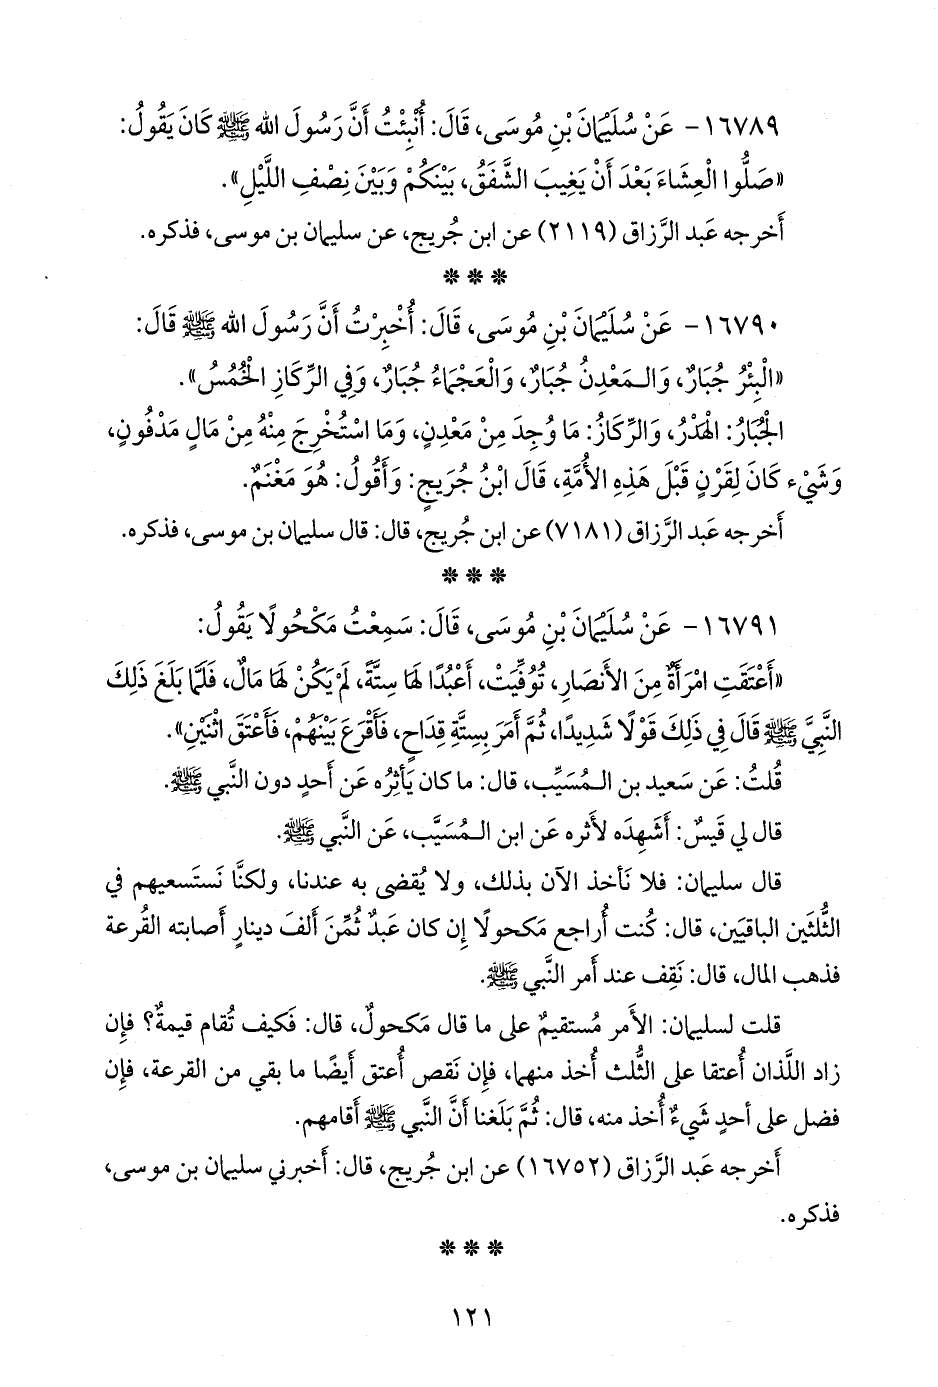 ١٦٧٨٩- عَنْ سُلَيْمَانَ بْنِ مُوسَى، قَالَ: أُنْبِئْتُ أَنَّ رَسُولَ الله ﷺ كَانَ يَقُولُ:
«صَلُّوا الْعِشَاءَ بَعْدَ أَنْ يَغِيبَ الشَّفَقُ، بَيْنَكُمْ وَبَيْنَ نِصْفِ اللَّيْلِ».
أَخرجه عَبد الرَّزاق (٢١١٩) عن ابن جُريج، عن سليمان بن موسى، فذكره.
* * *
١٦٧٩٠- عَنْ سُلَيْمَانَ بْنِ مُوسَى، قَالَ: أُخْبِرْتُ أَنَّ رَسُولَ الله ﷺ قَالَ:
«الْبِئْرُ جُبَارٌ، وَالـمَعْدِنُ جُبَارٌ، وَالْعَجْمَاءُ جُبَارٌ، وَفِي الرِّكَازِ الْخُمُسُ».
الْجُبَارُ: الْهَدْرُ، وَالرِّكَازُ: مَا وُجِدَ مِنْ مَعْدِنٍ، وَمَا اسْتُخْرِجَ مِنْهُ مِنْ مَالٍ مَدْفُونٍ،
وَشَيْء كَانَ لِقَرْنٍ قَبْلَ هَذِهِ الأُمَّةِ، قَالَ ابْنُ جُرَيجٍ: وَأَقُولُ: هُوَ مَغْنَمٌ.
أَخرجه عَبد الرَّزاق (٧١٨١) عن ابن جُريج، قال: قال سليمان بن موسى، فذكره.
* * *
١٦٧٩١- عَنْ سُلَيْمَانَ بْنِ مُوسَى، قَالَ: سَمِعْتُ مَكْحُولًا يَقُولُ:
«أَعْتَقَتِ امْرَأَةٌ مِنَ الأَنْصَارِ، تُوُفِّيَتْ، أَعْبُدًا لَهَا سِتَّةً، لَمْ يَكُنْ لَهَا مَالٌ، فَلَمَّا بَلَغَ ذَلِكَ
النَّبِيَّ ﷺ قَالَ فِي ذَلِكَ قَوْلًا شَدِيدًا، ثُمَّ أَمَرَ بِسِتَّةِ قِدَاحٍ، فَأَقْرَعَ بَيْنَهُمْ، فَأَعْتَقَ اثْنَيْنِ».
قُلتُ: عَن سَعيد بن الـمُسَيِّب، قال: ما كان يَأثِرُه عَن أَحدٍ دون النَّبي ﷺ.
قال لي قَيسٌ: أَشَهِدَه لأَثره عَن ابن الـمُسَيَّب، عَن النَّبي ﷺ.
قال سليمان: فلا نَأخذ الآن بذلك، ولا يُقضى به عندنا، ولكنَّا نَستَسعيهم في
الثُّلثَين الباقيَين، قال: كُنت أُراجع مَكحولًا إِن كان عَبدٌ ثُمِّنَ أَلفَ دينارٍ أَصابته القُرعة
فذهب المال، قال: نَقِف عند أَمر النَّبي ﷺ.
قلت لسليمان: الأَمر مُستقيمٌ على ما قال مَكحولٌ، قال: فَكيف تُقام قيمةٌ؟ فإِن
زاد اللَّذان أُعتقا على الثُّلث أُخذ منهما، فإِن نَقص أُعتق أَيضًا ما بقي من القرعة، فإِن
فضل على أَحدٍ شَيءٌ أُخذ منه، قال: ثُمَّ بَلَغنا أَنَّ النَّبي ﷺ أَقامهم.
أَخرجه عَبد الرَّزاق (١٦٧٥٢) عن ابن جُريج، قال: أَخبرني سليمان بن موسى،
فذكره.
* * *
١٢١